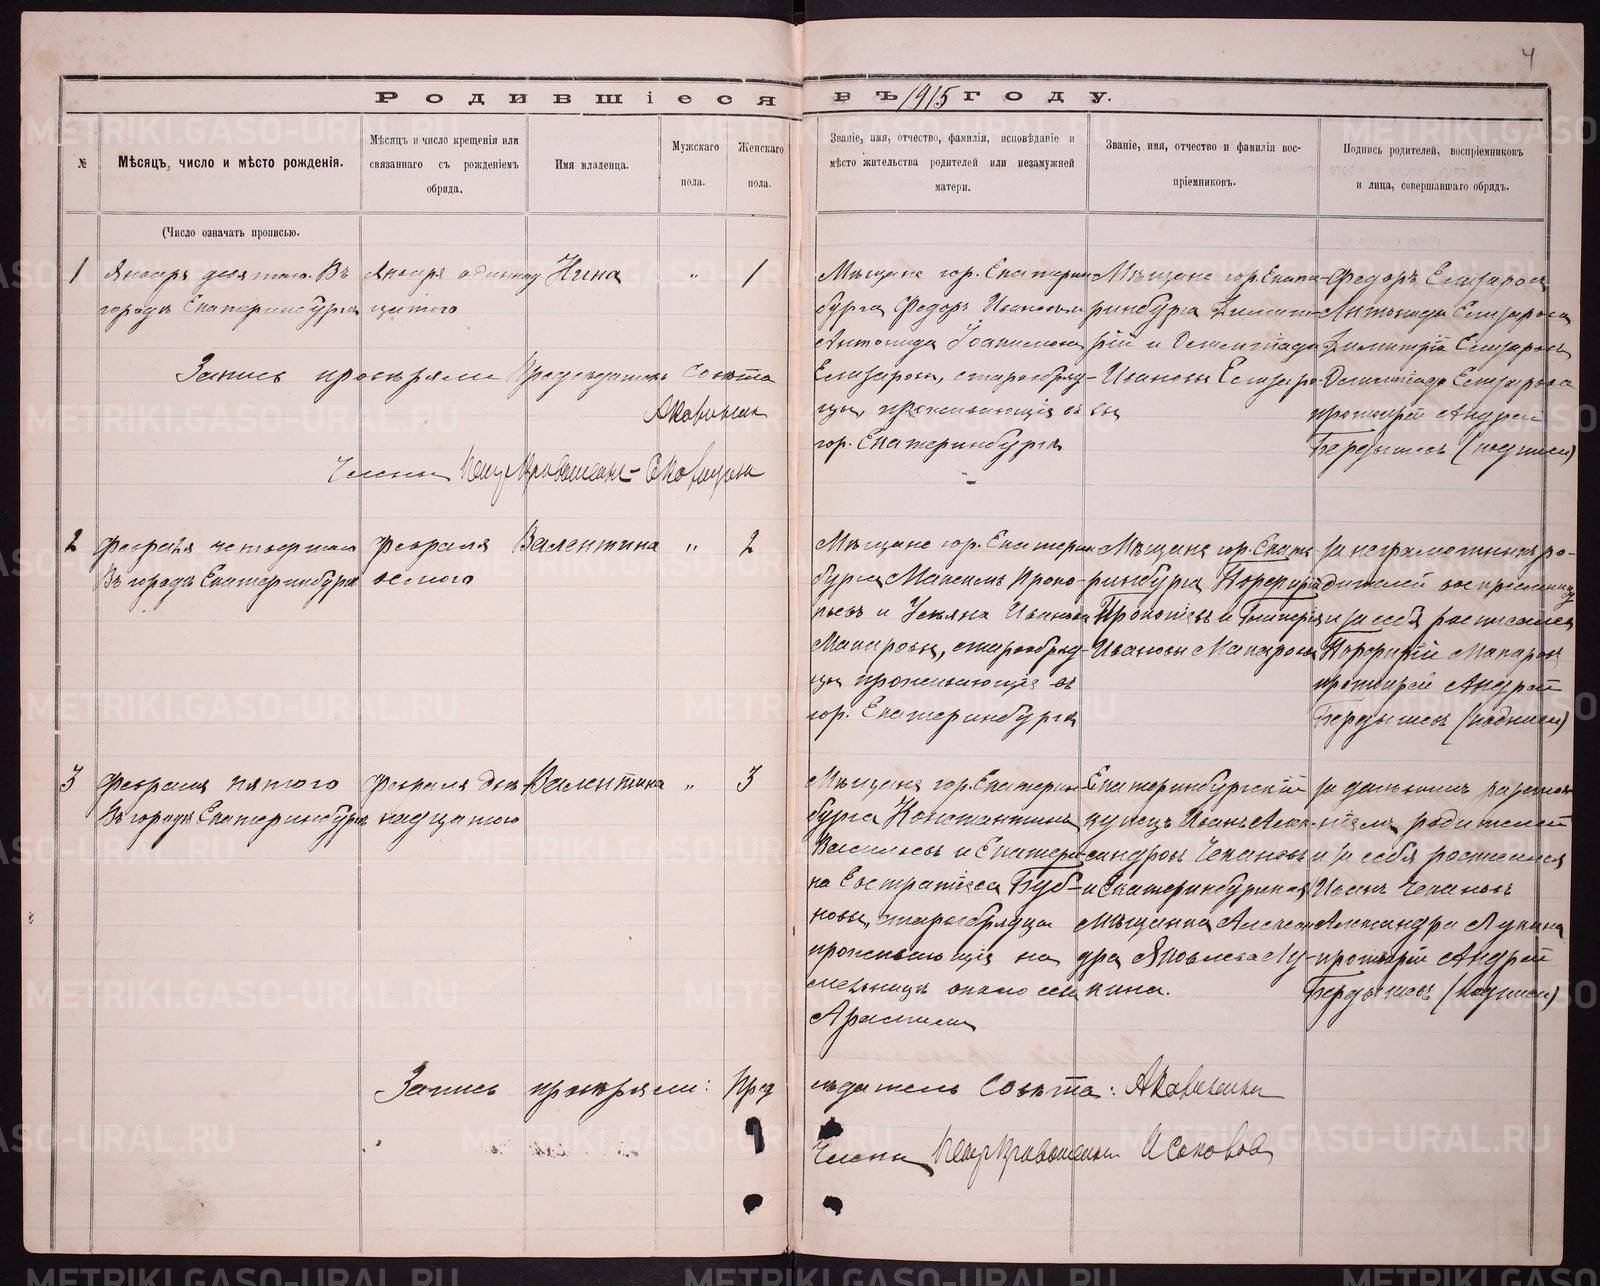 4
Родившіеся въ 1915 году.
№
Мѣсяцъ, число и мѣсто рожденія.
Мѣсяцъ и число крещенія или
связаннаго съ рожденіемъ
обряда.
Имя младенца.
Мужскаго
пола.
Женскаго
пола.
Званіе, имя, отчество, фамилія, исповѣданіе и
мѣсто жительства родителей или незамужней
матери.
Званіе, имя, отчество и фамилія вос-
пріемниковъ.
Подпись родителей, воспріемниковъ
и лица, совершавшаго обрядъ.
(Число означать прописью.
1
Января девятаго. Въ
городѣ Екатеринбургѣ
Января одинад
цатого
Нина
"
1
Мѣщане гор. Екатерин
бурга Федоръ Ивановъ и
Антонида
Елизаровы, старообряд-
цы, проживающіе въ
гор. Екатеринбургѣ
Мѣщане гор. Екате-
ринбурга Димит-
рій и
Ивановы Елизаро-
вы
Федоръ Елизаровъ
Антонида Елизарова
Димитрій Елизаровъ
Елизарова
протоіерей Андрей
Бердышевъ (подписи)
Запись провѣряли Предсѣдатель Совѣта
Члены
2
Февраля четвертаго
Въ городѣ Екатеринбургѣ
Февраля
осмого
Валентина
"
2
Мѣщане гор. Екатерин
бурга Проко-
пьевъ и Ульяна Иванова
Макаровы, старообряд-
цы проживающіе въ
гор. Екатеринбургѣ
Мѣщане гор. Екате
ринбурга Порфирій
Прокопьевъ и
Ивановы Макаровы
За неграмотныхъ ро-
дителей
и за себя росписался
Порфирій Макаровъ
протоіерей Андрей
Бердышевъ (подписи)
3
Февраля пятого
Въ городѣ Екатеринбургѣ
Февраля две
надцатого
Валентина
"
3
Мѣщане гор. Екатерин
бурга Константинъ
Васильевъ и Екатери-
на Евстратіева Буб-
новы, старообрядцы
проживающіе на
мельницѣ около села
Арамили
Екатеринбургскій
купецъ Иванъ Алек-
сандровъ Чекановъ
и Екатеринбургская
Мѣщанка Алексан
дра Яковлева Лу-
кина.
За
ніемъ родителей
и за себя росписался
Иванъ Чекановъ
Александра Лукина
протоіерей Андрей
Бердышевъ (подписи)
Запись провѣряли: Пред
сѣдатель Совѣта:
Члены
METRIKI.GASO-URAL.RU